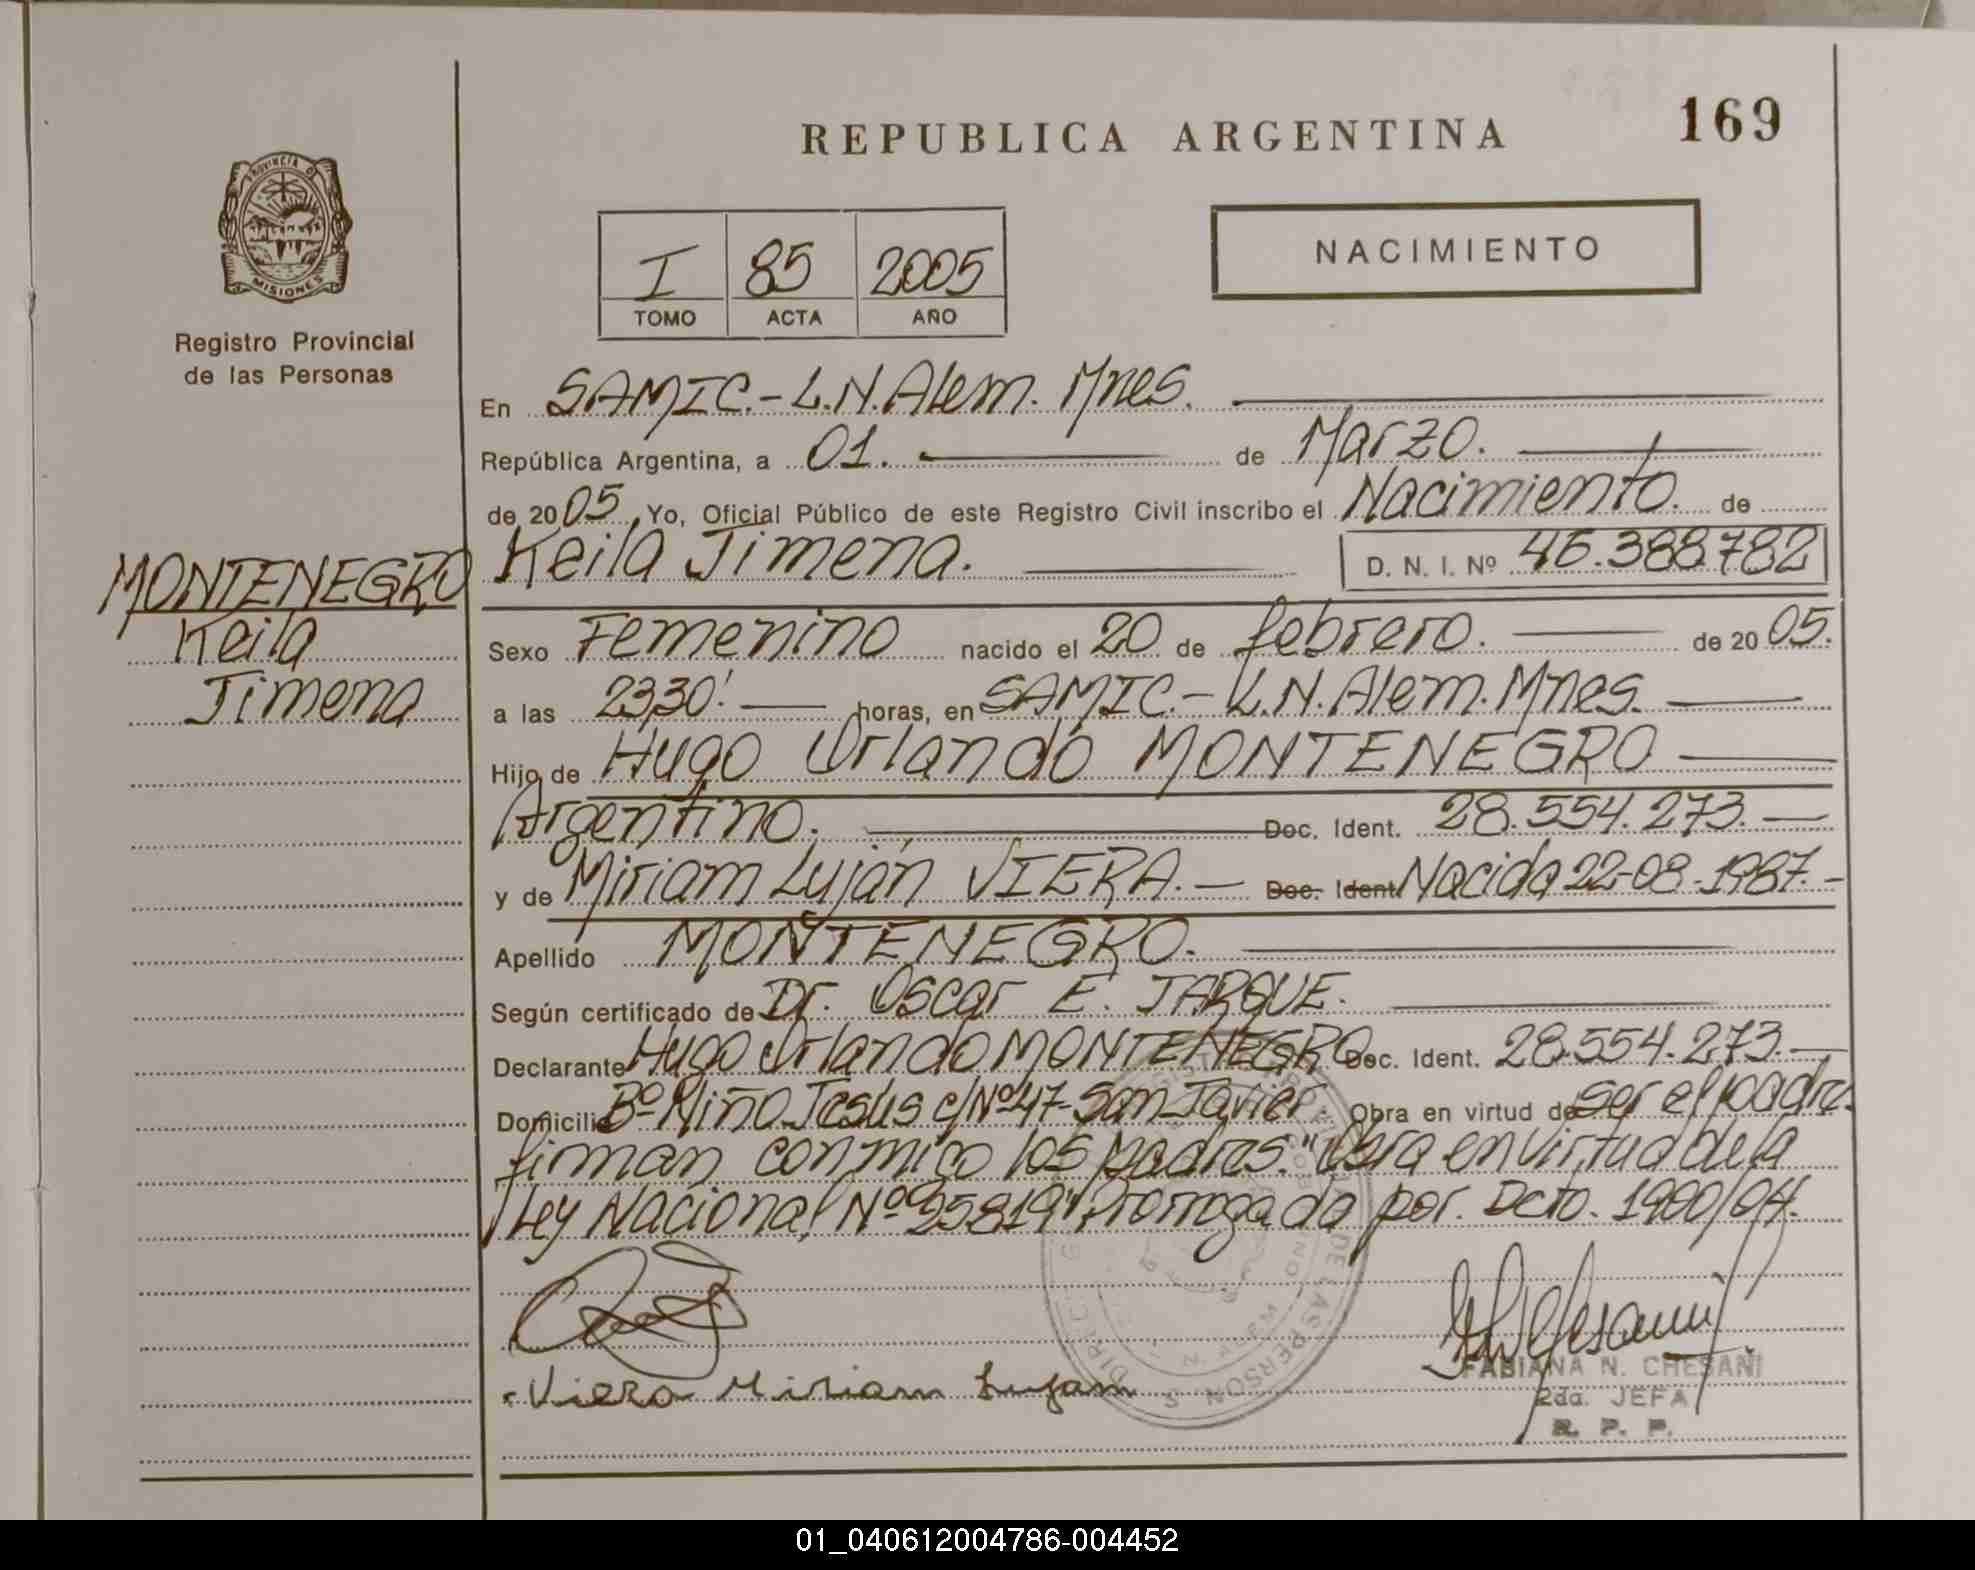 REPUBLICA ARGENTINA
169
PROVINCIA DE
MISIONES
Registro Provincial
de las Personas
I 85 2005
TOMO ACTA AÑO
NACIMIENTO
En SAMIC.- L.N.Alem. Mnes.
República Argentina, a 01. de Marzo.
de 2005 Yo, Oficial Público de este Registro Civil inscribo el Nacimiento. de
Keila Jimena. D. N. I. Nº 46.388.782
MONTENEGRO
Keila
Jimena
Sexo Femenino nacido el 20 de febrero. de 2005.
a las 23,30' horas, en SAMIC.- L.N.Alem. Mnes.
Hijo de Hugo Orlando MONTENEGRO
Argentino. Doc. Ident. 28.554.273.
y de Miriam Luján VIERA. Doc. Ident. Nacida 22-08-1987.
Apellido MONTENEGRO.
Según certificado de Dr. Oscar E. JARQUE.
Declarante Hugo Orlando MONTENEGRO Doc. Ident. 28.554.273.
Domicilio Bº Niño Jesus c/Nº47- San Javier. Obra en virtud de ser el padre.
firman conmigo los padres. "Obra en virtud de la
Ley Nacional Nº 25819" Prorrogado por. Dcto. 1900/04.
Viera Miriam Lujam
FABIANA N. CHESAÑI
2da. JEFA
R. P. P.
01_040612004786-004452